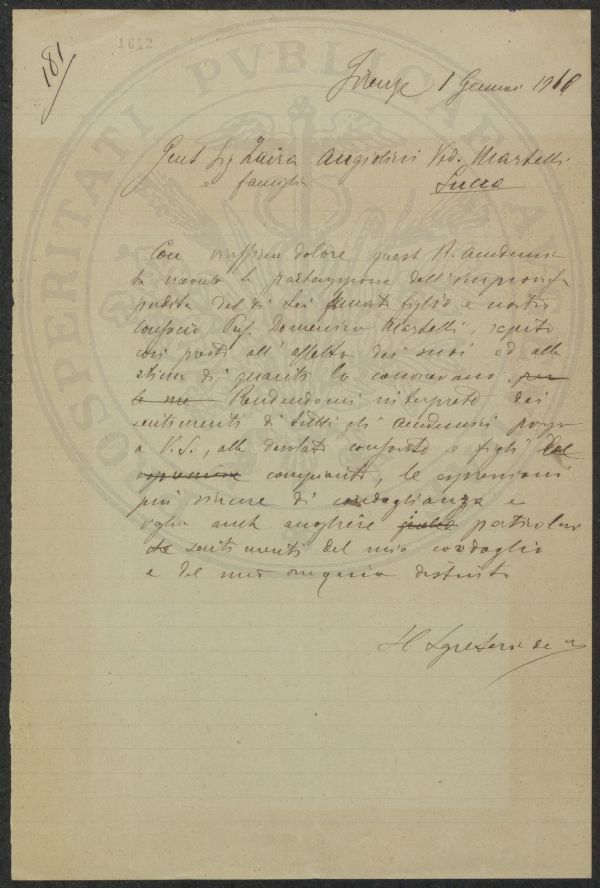 181
1642
Firenze 1 Gennaio 1918
Gent Sig Zaira Angiolini Ved. Martelli
e famiglia Lucca
Con vivissimo dolore quest R. Accademia
ha ricevuto la partecipazione dell'improvvisa
perdita del di Lei figlio e nostro
consocio Prof. Domenico Martelli, rapito
così presto all'affetto dei suoi ed alla
stima di quanti lo conoscevano. per
la Rendendomi interprete dei
sentimenti di tutti gli accademici porgo
a V.S., alla desolata consorte e figli del
espressione compianto, le espressioni
più sincere di condoglianza e
voglia anche accogliere particolari
sentimenti del mio cordoglio
e del mio ossequio distinto
Il Segretario
PROSPERITATI PVBLICAE